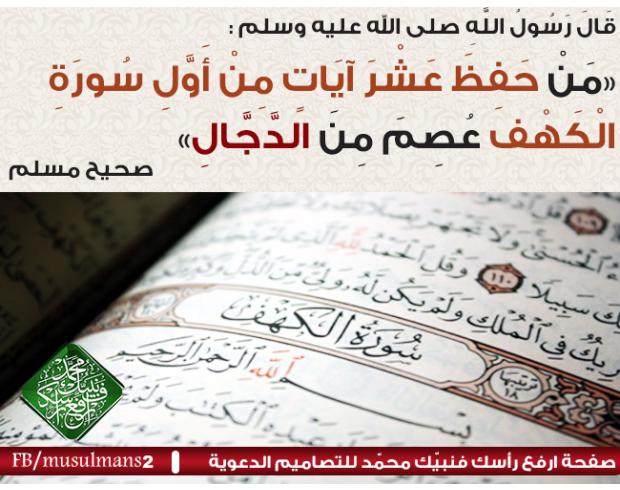 قَالَ رَسُولُ اللَّهِ صلى الله عليه وسلم :
«مَنْ حَفِظَ عَشْرَ آيَاتٍ مِنْ أَوَّلِ سُورَةِ
الْكَهْفِ عُصِمَ مِنَ الدَّجَّالِ»
صحيح مسلم
وَلَا تَجْهَرْ بِصَلَا
سَبِيلًا ١١٠ وَقُلِ الْحَمْدُ لِلَّهِ
فِي الْمُلْكِ وَلَمْ يَكُن لَّهُ وَلِيٌّ مِّنَ الذُّلِّ وَكَبِّرْهُ
سُورَةُ الْكَهْفِ
بِسْمِ اللَّهِ الرَّحْمَٰنِ الرَّحِيمِ
عَبْدِهِ الْكِتَابَ وَلَمْ
صفحة ارفع رأسك فنبيّك محمّد للتصاميم الدعوية
FB/musulmans2